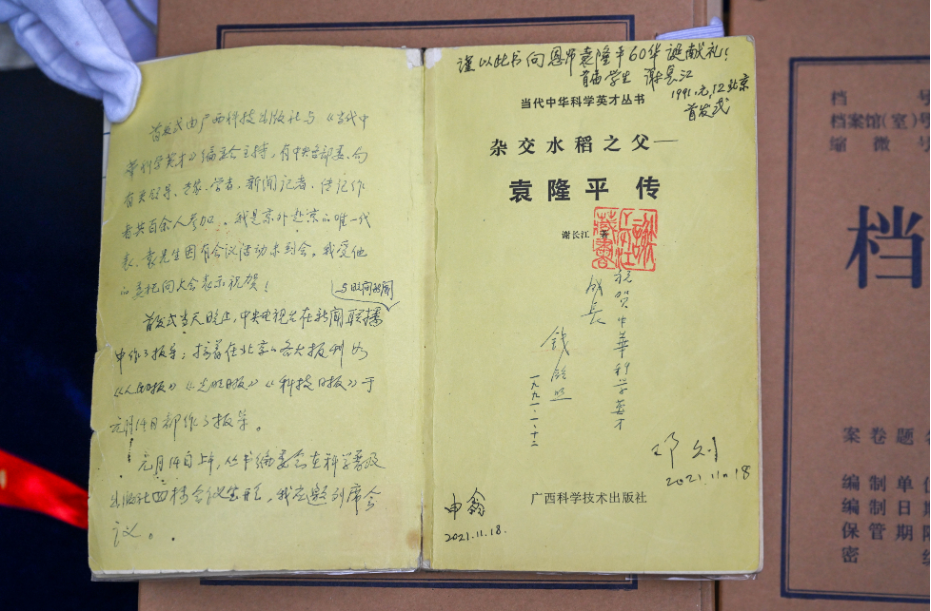 首发式由广西科技出版社与《当代中
华科学英才》编委会主持，有中央各部委、向
有关领导、专家、学者、新闻记者、传记作
者共百余人参加。我是京外赴京的唯一代
表、袁先生因有会议活动未到会，我受他
的委托向大会表示祝贺！
与晚间新闻
首发式当天晚上，中央电视台在新闻联播
中作了报导；接着在北京的各大报刊如
《人民日报》《光明日报》《科技日报》于
元月14日都作了报导。
元月14日上午，丛书编委会在科学普及
出版社四楼会议室召开，我应邀列席会
议。
谨以此书向恩师袁隆平60华诞献礼！
首届学生 谢长江
1991.元.12北京
首发式
当代中华科学英才丛书
杂交水稻之父—
袁隆平 传
谢长江 著
藏书
祝贺中華科学英才
成長
钱
一九九一·一·十二
邓剑
2021.11.18
广西科学技术出版社
申鑫
2021.11.18.
档 号
档案馆(室)号
缩 微 号
档
案卷题名
编制单位
编制日期
保管期限
密